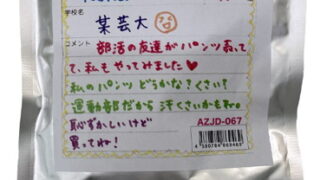 学校名
某芸大
コメント
部活の友達がパンツ売って
て、私もやってみました♥
私のパンツどうかな?くさい?
運動部だから汗くさいかもね。
恥ずかしいけど
買ってね!
AZJD-067